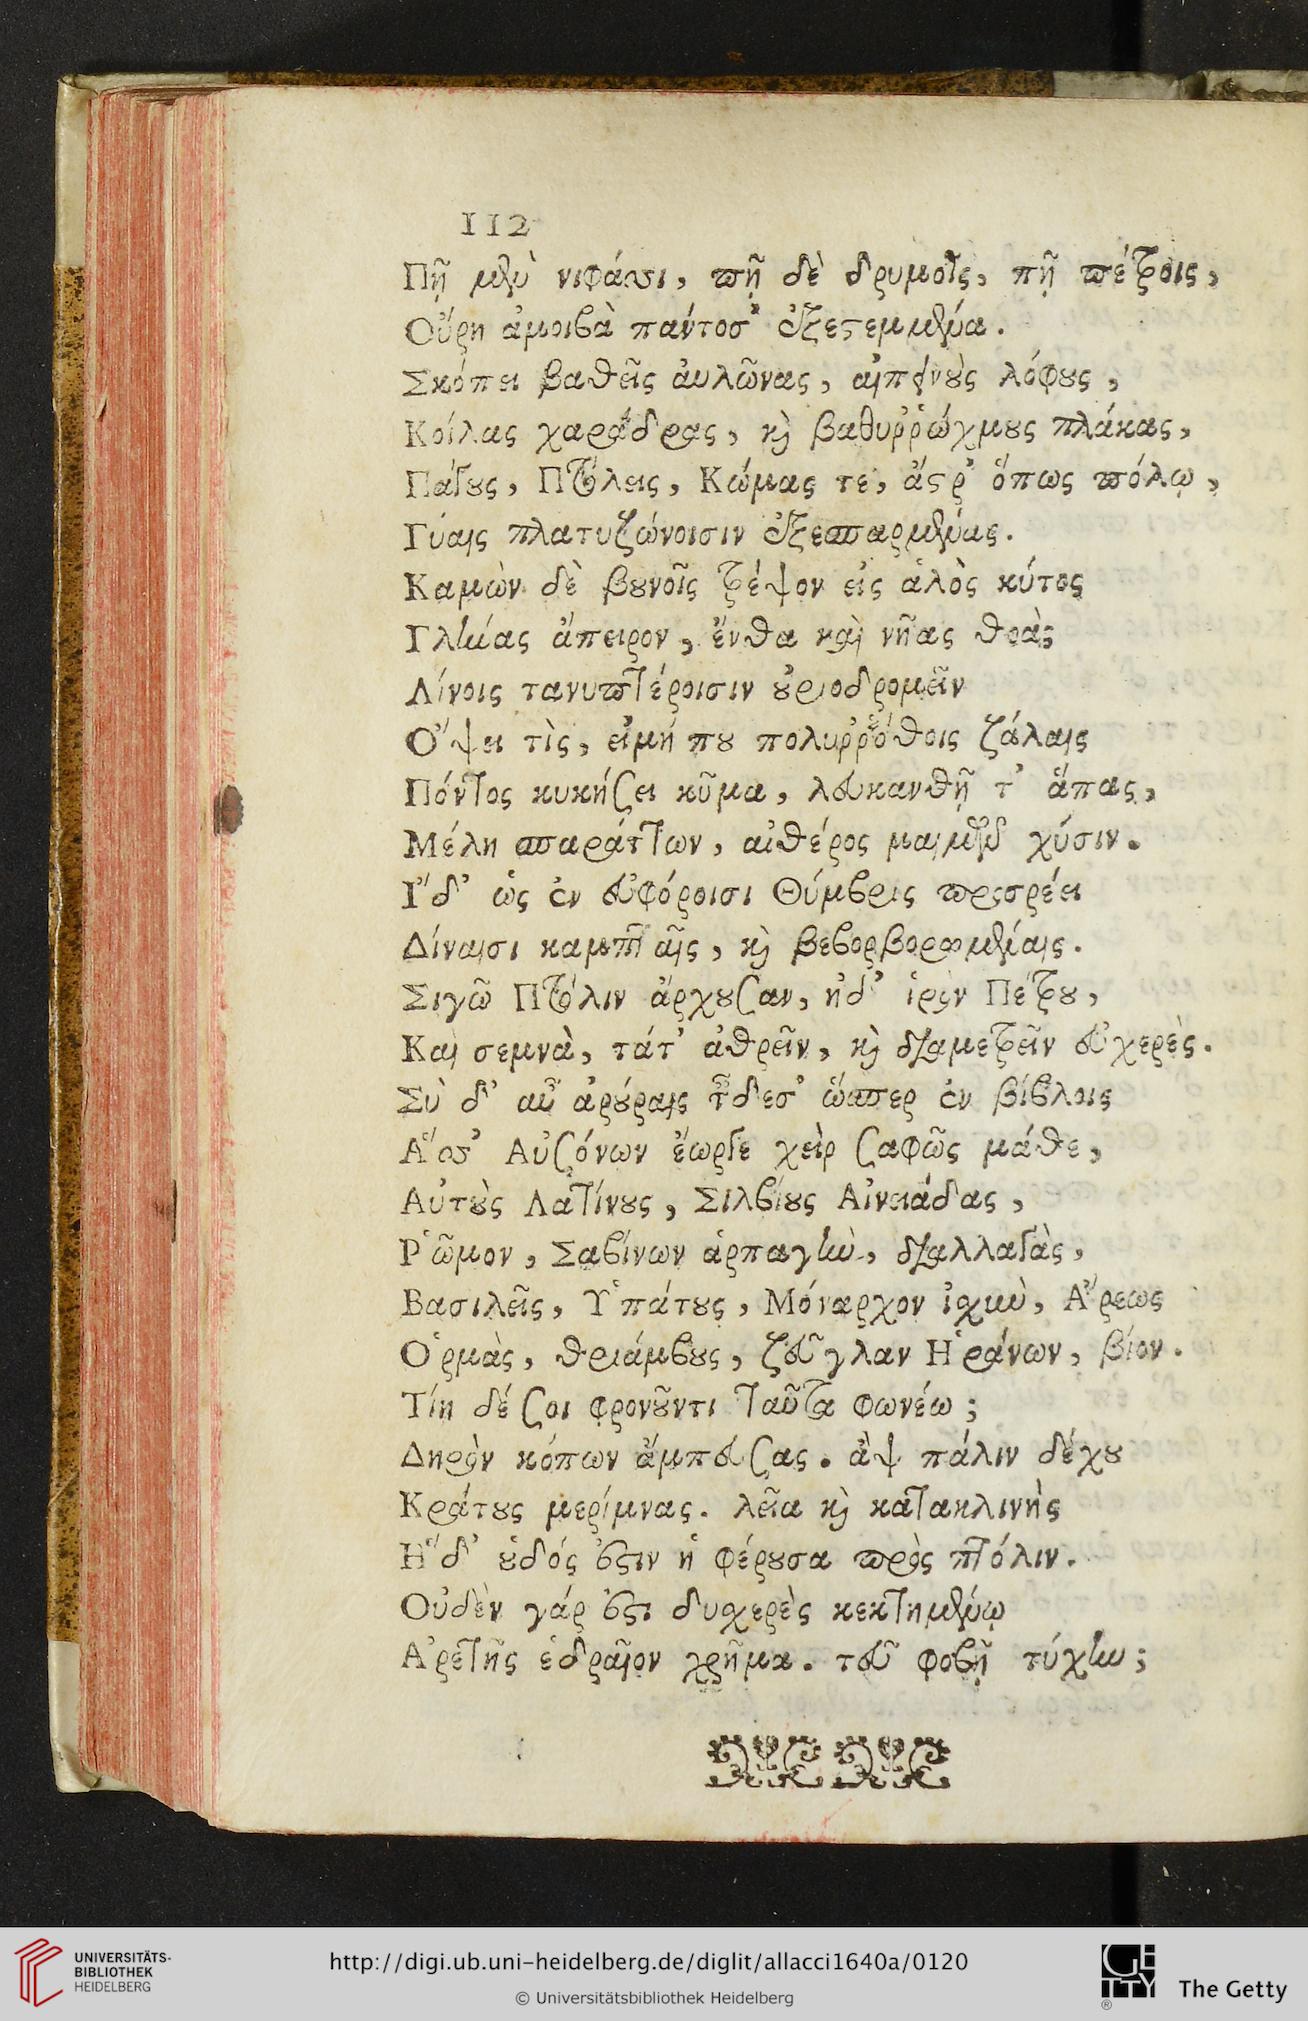 112
Πῆ μὲν νιφάσι, πῆ δὲ δρυμοῖς, πῆ πέτροις,
Οὔρη ἀμοιβὰ παντοσ' ἐξεστεμμένα.
Σκόπει βαθεῖς αὐλῶνας, αἰπεινοὺς λόφους,
Κοίλας χαράδρας, καὶ βαθυῤῥώχμους πλάκας,
Πάγους, Πτόλεις, Κώμας τε, ἄστρ' ὅπως πόλῳ,
Γύαις πλατυζώνοισιν ἐξεσπαρμένας.
Καμὼν δὲ βουνοῖς τρέψον εἰς ἁλὸς κύτος
Γλήνας ἄπειρον, ἔνθα καὶ νῆας θοὰς
Λίνοις τανυπτέροισιν οὐριοδρομεῖν
Ὄψει τὶς, εἰμή που πολυῤῥόθοις ζάλαις
Πόντος κυκήσει κῦμα, λευκανθῆ τ' ἅπας,
Μέλη σπαράττων, αἰθέρος μαιμᾷ χύσιν.
Ἴδ' ὡς ἐν εὐφόροισι Θύμβρις προσρέει
Δίναισι καμπταῖς, καὶ βεβορβορωμέναις.
Σιγῶ Πτόλιν ἄρχουσαν, ἠδ' ἱρὸν Πέτρου,
Καὶ σεμνὰ, τάτ' ἀθρεῖν, καὶ διαμετρεῖν εὐχερὲς.
Σὺ δ' αὖ ἀρούραις τῇδεσ' ὥσπερ ἐν βίβλοις
Ἅσσ' Αὐσόνων ἔωργε χεὶρ σαφῶς μάθε,
Αὐτοὺς Λατίνους, Σιλβίους Αἰνειάδας,
Ῥῶμον, Σαβίνων ἁρπαγὴν, διαλλαγὰς,
Βασιλεῖς, Ὑπάτους, Μόναρχον ἰσχὺν, Ἄρεως
Ὁρμὰς, θριάμβους, ζεῦγλαν Ἡράνων, βίον.
Τίη δέ σοι φρονοῦντι ταῦτα φωνέω;
Δηρὸν κόπων ἄμπευσας. ἂψ πάλιν δέχου
Κράτους μερίμνας. λεῖα καὶ κατακλινὴς
Ἥδ' οὑδός ἐστιν ἡ φέρουσα πρὸς πτόλιν.
Οὐδὲν γάρ ἐστι δυσχερὲς κεκτημένῳ
Ἀρετῆς ἑδραῖον χρῆμα. τεῦ φοβῇ τύχην;
UNIVERSITÄTS-
BIBLIOTHEK
HEIDELBERG
http://digi.ub.uni-heidelberg.de/diglit/allacci1640a/0120
© Universitätsbibliothek Heidelberg
The Getty